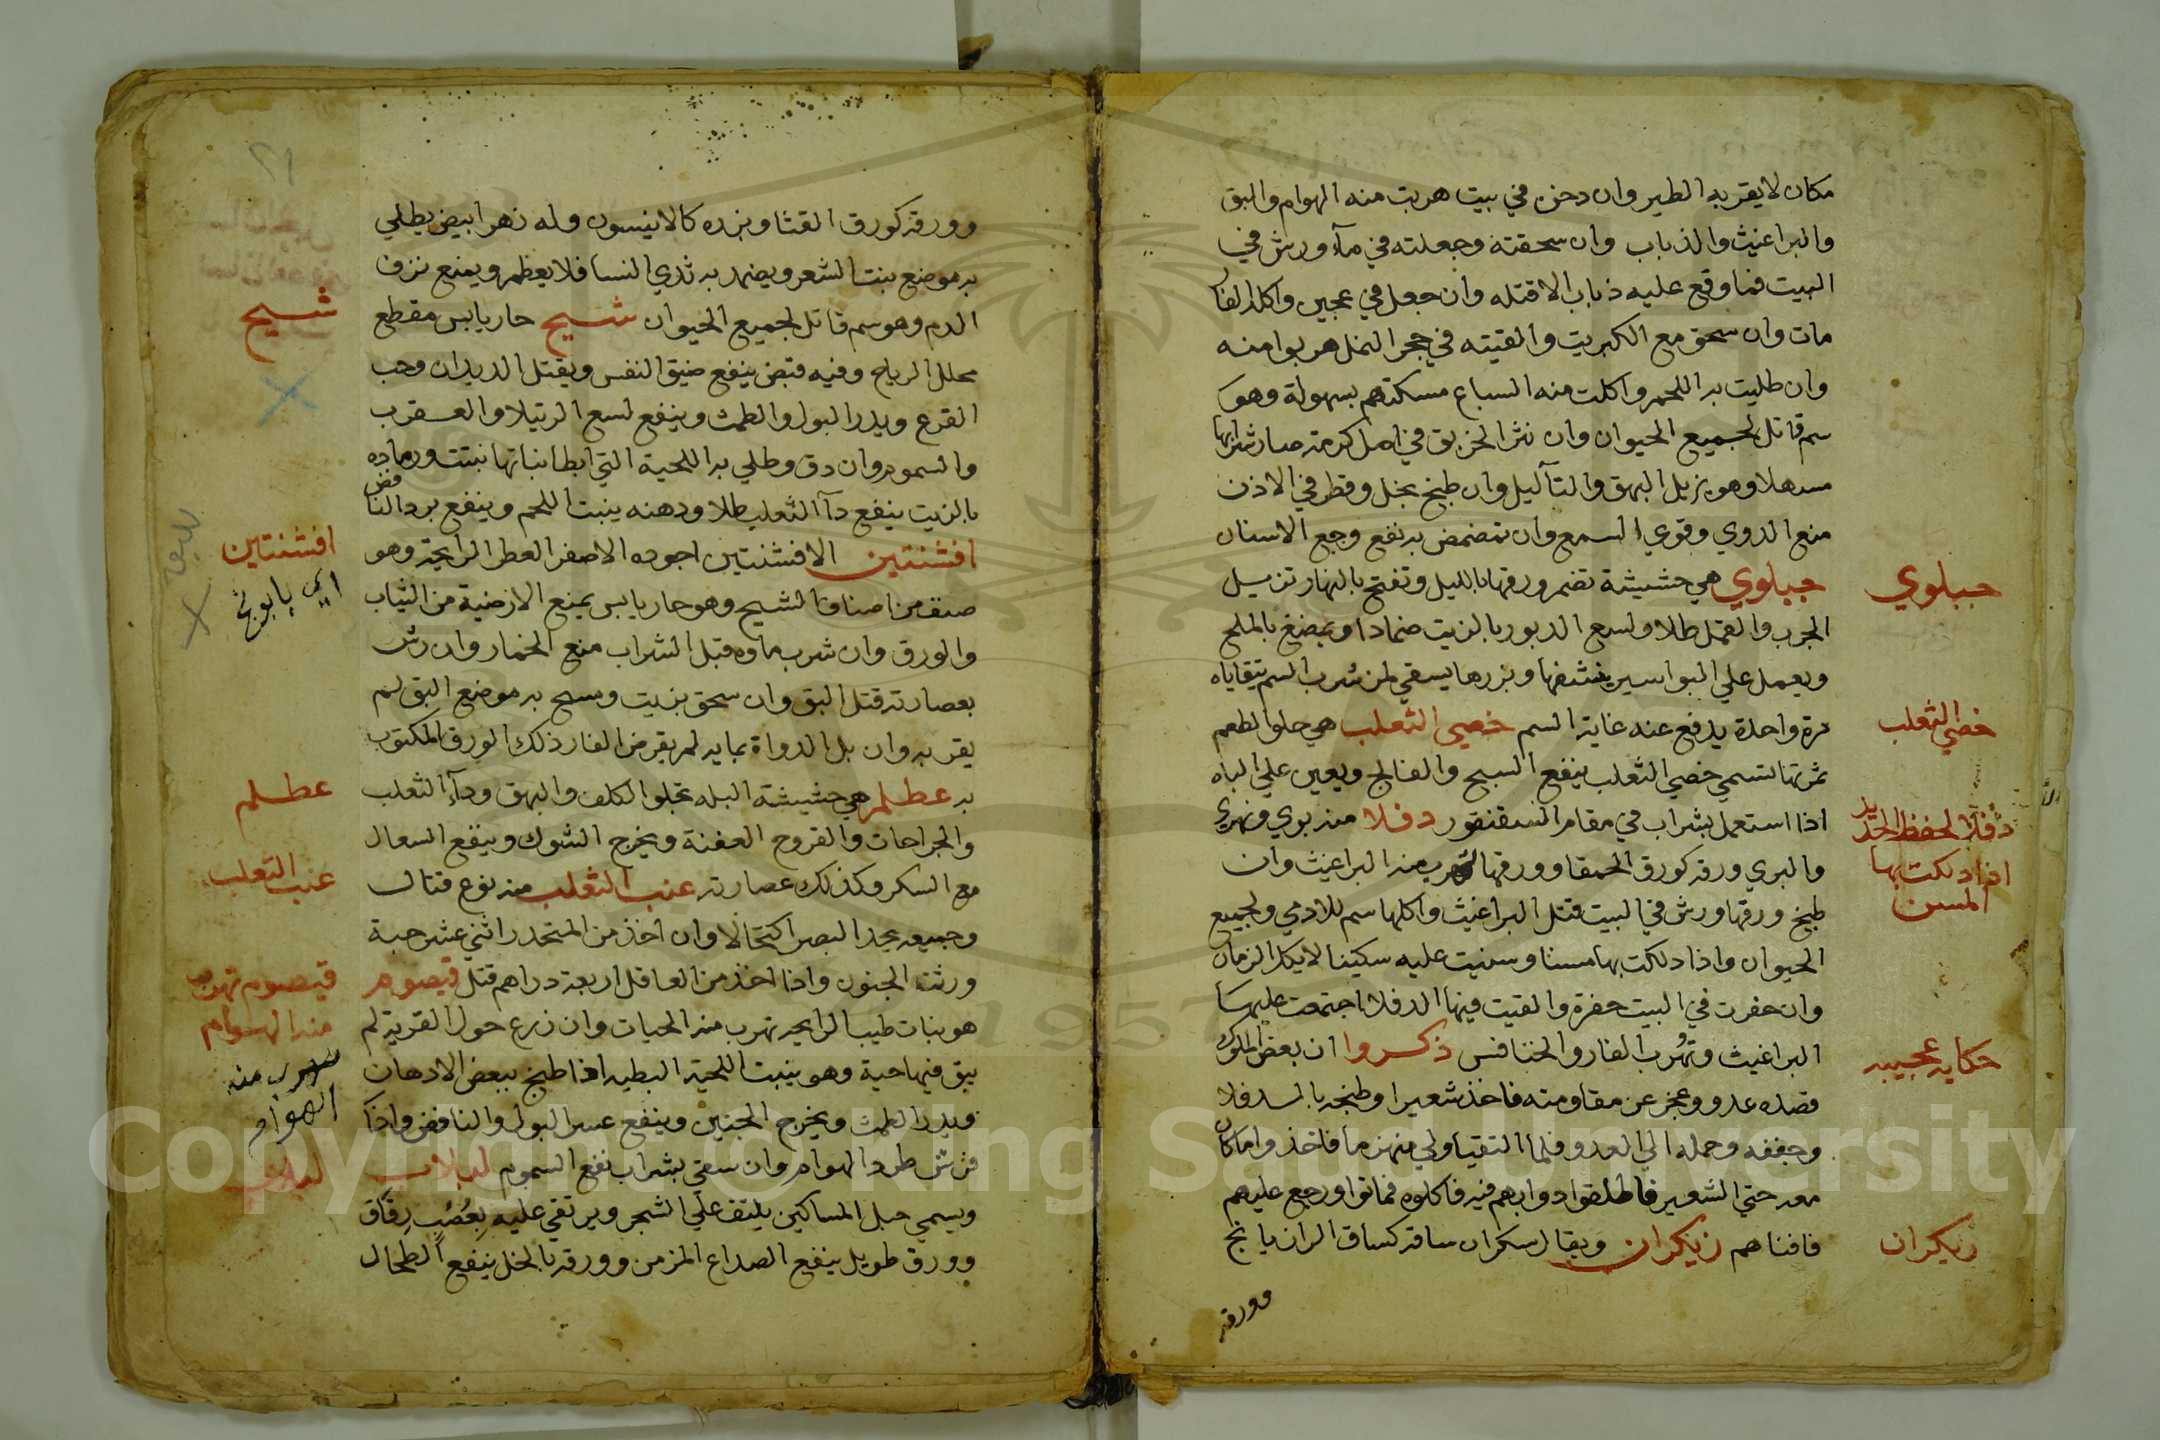 مكان لا يقربه الطير وان دخن في بيت هربت منه الهوام والبق
والبراغيث والذباب وان سحقته وجعلته في مآء ورش في
البيت فما وقع عليه ذباب الا قتله وان جعل في عجين واكله الفار
مات وان سحق مع الكبريت والقيته في جحر النمل هربوا منه
وان طليت به اللحم واكلت منه السباع مسكتهم بسهولة وهو
سم قاتل لجميع الحيوان وان نثر الخربق في اصل كرمة صار شرابها
مسهلا وهو يزيل البهق والثآليل وان طبخ بخل وقطر في الاذن
منع الدوي وقوي السمع وان تمضمض به نفع وجع الاسنان
جبلوي هي حشيشة تضم ورقها بالليل وتفتح بالنهار تزيل
الجرب والقمل طلا ولسع الدبور بالزيت ضمادا ويمضغ بالملح
ويعمل علي البواسير ينشفها وبزرها يسقي لمن شرب السم يتقاياه
مرة واحدة يدفع عنه غاية السم خصي الثعلب هي حلو الطعم
ثمرتها تسمي خصي الثعلب ينفع السبح والفالج ويعين علي الباه
اذا استعمل بشراب في مقام السقنقور دفلا منه بري ونهري
والبري ورقه كورق الحمقا وورقها تهرب منه البراغيث وان
طبخ ورقها ورش في البيت قتل البراغيث واكلها سم للادمي ولجميع
الحيوان واذا دلكت بها مسنا وسنيت عليه سكينا لا يكل الزمان
وان حفرت في البيت حفرة والقيت فيها الدفلا اجتمعت عليها
البراغيث وتهرب الفار والخنافس ذكروا ان بعض الملوك
قصده عدو وعجز عن مقاومته فاخذ شعيرا وطبخه بالدفلا
وجففه وحمله الي العدو فلما التقيا ولي منهزما فاخذوا ما كان
معه حتي الشعير فاطلقوا دوابهم فيه فاكلوه فماتوا ورجع عليهم
فافناهم زيكران ويقال سكران ساقه كساق الرازيانج
وورقه
جبلوي
خصي الثعلب
دفلا لحفظ الحديد
اذا دلكت بها
المسن
حكايه عجيبه
زيكران
٢١
وورقه كورق القثا وبزره كالانيسون وله زهر ابيض يطلي
به موضع ينبت الشعر ويضمد به ثدي النسا فلا يعظم ويمنع نزف
الدم وهو سم قاتل لجميع الحيوان شيح حار يابس مقطع
محلل الرياح وفيه قبض ينفع ضيق النفس ويقتل الديدان وحب
القرع ويدر البول والطمث وينفع لسع الرتيلا والعقرب
والسموم وان دق وطلي به اللحية التي ابطا نباتها نبتت ورماده
بالزيت ينفع دآ الثعلب طلا ودهنه ينبت اللحم وينفع برد النافض
افشنتين الافشنتين اجوده الاصفر العطر الرايحة وهو
صنف من اصناف الشيح وهو حار يابس يمنع الارضية من الثياب
والورق وان شرب ماوه قبل الشراب منع الخمار وان رش
بعصارته قتل البق وان سحق بزيت ومسح به موضع البق لم
يقربه وان بل الدواة بمايه لم يقرض الفار ذلك الورق المكتوب
به عظلم هي حشيشة البله تجلوا الكلف والبهق ودآء الثعلب
والجراحات والقروح العفنة ويخرج الشوك وينفع السعال
مع السكر وكذلك عصارته عنب الثعلب منه نوع قتال
وجميعه يحد البصر اكتحالا وان اخذ من المتخدر اثني عشر حبة
ورثه الجنون واذا اخذ من العاقل اربعة دراهم قتل قيصوم
هو نبات طيب الرايحه تهرب منه الحيات وان زرع حول القرية لم
يبق فيها حية وهو ينبت اللحية البطيه اذا طبخ ببعض الادهان
ويدر الطمث ويخرج الجنين وينفع عسر البول والنافض واذا
فرش طرد الهوام وان سقي بشراب نفع السموم لبلاب
ويسمي حبل المساكين يلتف علي الشجر ويرتقي عليه بعصب رقاق
وورق طويل ينفع الصداع المزمن وورقه بالخل ينفع الطحال
شيح
افشنتين
اي يابونج
عظلم
عنب الثعلب
قيصوم تهرب
منه الهوام
تهرب منه
الهوام
لبلاب
Copyright © King Saud University
1957